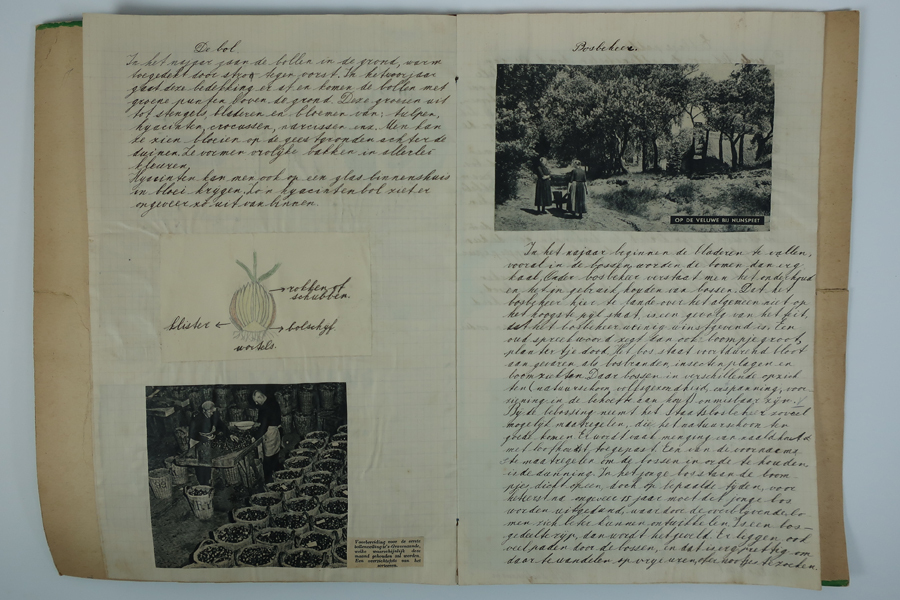 De bol.
In het najaar gaan de bollen in de grond, warm
toegedekt door stroo tegen vorst. In het voorjaar
gaat deze bedekking er af en komen de bollen met
groene punten boven de grond. Deze groeien uit
tot stengels, bladeren en bloemen van: tulpen,
hyacinten, crocussen, narcissen enz. Men kan
ze zien bloeien op de geestgronden achter de
duinen. Ze vormen vrolijke vakken in allerlei
kleuren.
Hyacinten kan men ook op een glas binnenshuis
in bloei krygen. Zo'n hyacintenbol ziet er
ongeveer zo uit van binnen.
rokken of
schubben.
klister
bolschyf
wortels.
Voorbereiding voor de eerste
welke waarschijnlijk deze
maand gehouden zal worden.
Een overzichtsfoto van het
sorteeren.
Bosbeheer.
OP DE VELUWE BIJ NUNSPEET
In het najaar beginnen de bladeren te vallen,
vooral in de bossen, worden de bomen dan erg
kaal. Onder bosbeheer verstaat men het onderhoud
en het in gebruik houden van bossen. Dat het
bosbeheer hier te lande over het algemeen niet op
het hoogste pyl staat, is een gevolg van het feit,
dat het bosbeheer weinig winstgevend is. Een
oud spreekwoord zegt dan ook: boompje groot,
plantertje dood. Het bos staat voortdurend bloot
aan gevaren als bosbranden, insectenplagen en
boomziekten. Daar bossen in verschillende opzich
ten (natuurschoon, volksgezondheid, ontspanning, voor-
ziening in de behoefte aan hout) onmisbaar zijn.
By de bebossing neemt het Staatsbosbeheer zoveel
mogelyk maatregelen, die het natuurschoon ten
goede komen. Er wordt vaak menging van naaldhout
met loofhout toegepast. Een van de voornaam
ste maatregelen om de bossen in orde te houden
is de dunning. In het jonge bos staan de boom
pjes dicht opeen, doch op bepaalde tyden, voor
het eerst na ongeveer 15 jaar moet het jonge bos
worden uitgedund, waardoor de overblyvende bo-
men zich beter kunnen ontwikkelen. Is een bos-
gedeelte ryp, dan wordt het geveld. Er liggen ook
veel paden door de bossen, en dat is erg prettig om
daar te wandelen op vrye uren,